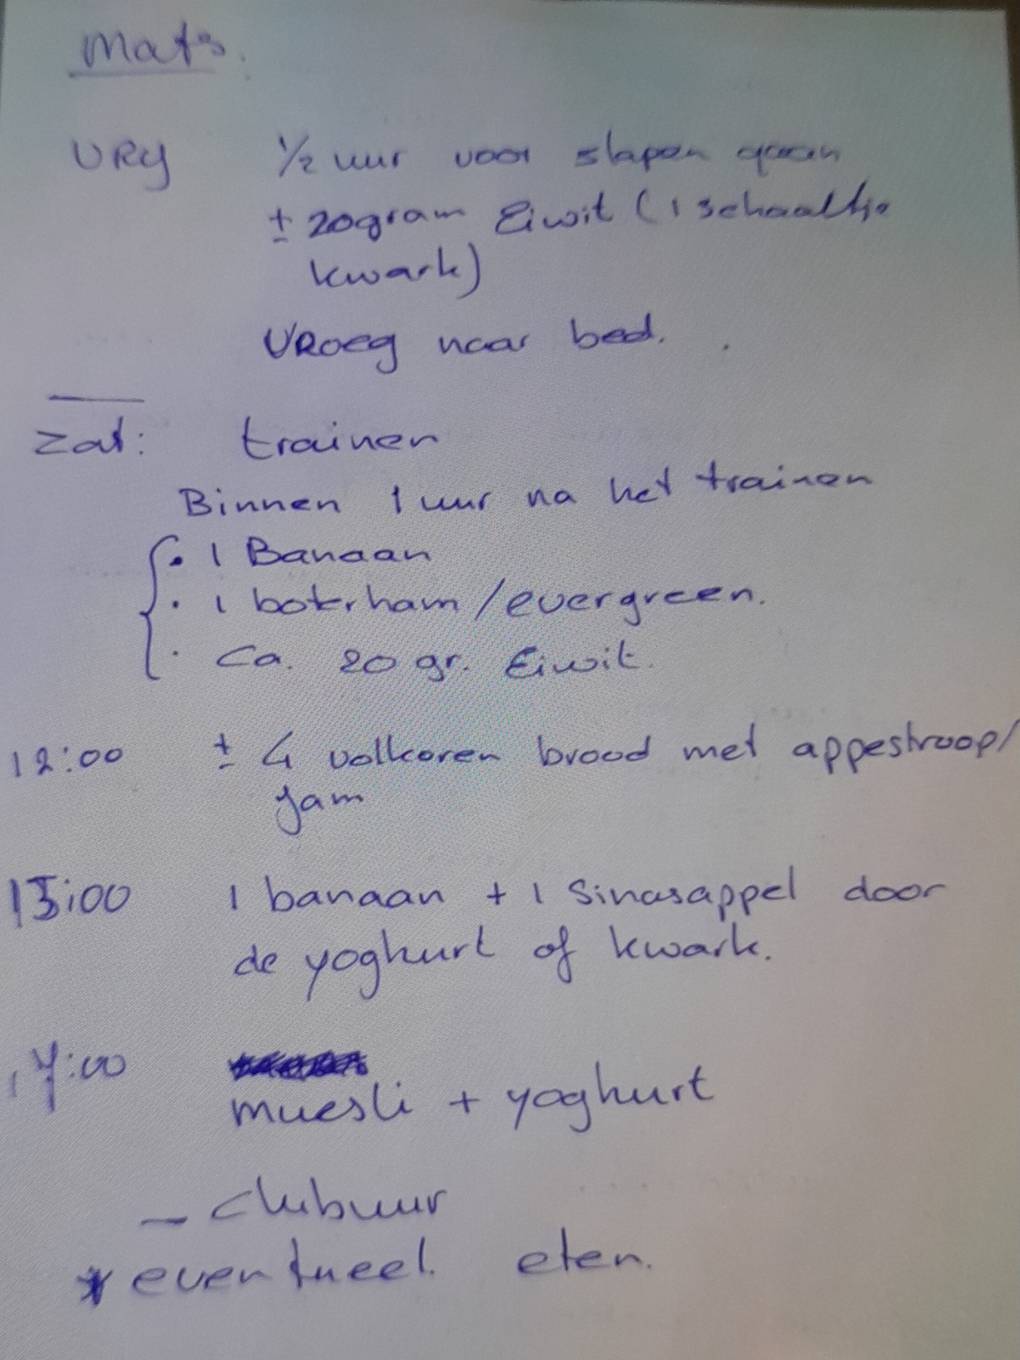 Mats.
VRY ½ uur voor slapen gaan
± 20gram Eiwit (1 schaaltje
kwark)
VRoeg naar bed.
Zat: trainen
Binnen 1 uur na het trainen
• 1 Banaan
• 1 boterham/evergreen.
• Ca. 20 gr. Eiwit.
12:00 ± 4 volkoren brood met appestroop/
jam
15:00 1 banaan + 1 Sinasappel door
de yoghurt of kwark.
17:00
muesli + yoghurt
- clubuur
* eventueel. eten.